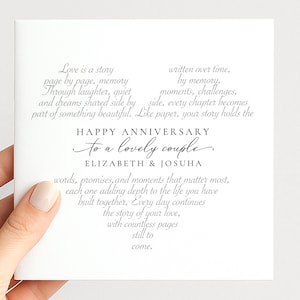 Love is a story written over time,
page by page, memory by memory.
Through laughter, quiet moments, challenges,
and dreams shared side by side, every chapter becomes
part of something beautiful. Like paper, your story holds the
HAPPY ANNIVERSARY
to a lovely couple
ELIZABETH & JOSUHA
words, promises, and moments that matter most,
each one adding depth to the life you have
built together. Every day continues
the story of your love,
with countless pages
still to
come.